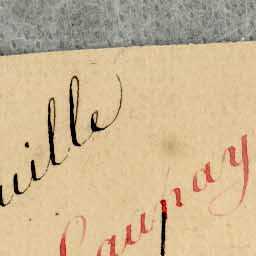 uille
Launay